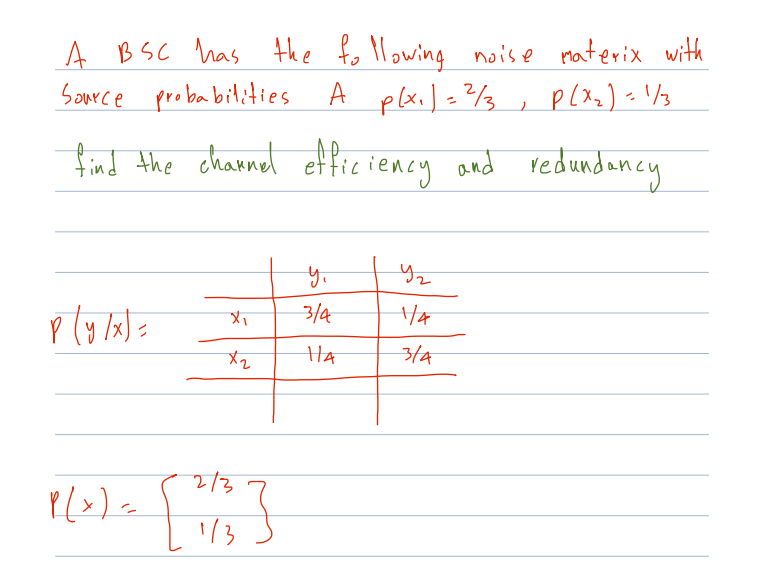 A BSC has the following noise materix with
Source probabilities A p(x₁) = 2/3 , p(x₂) = 1/3
find the channel efficiency and redundancy
y₁ y₂
P(y/x) = x₁ 3/4 1/4
x₂ 1/4 3/4
P(x) = [ 2/3
1/3 ]